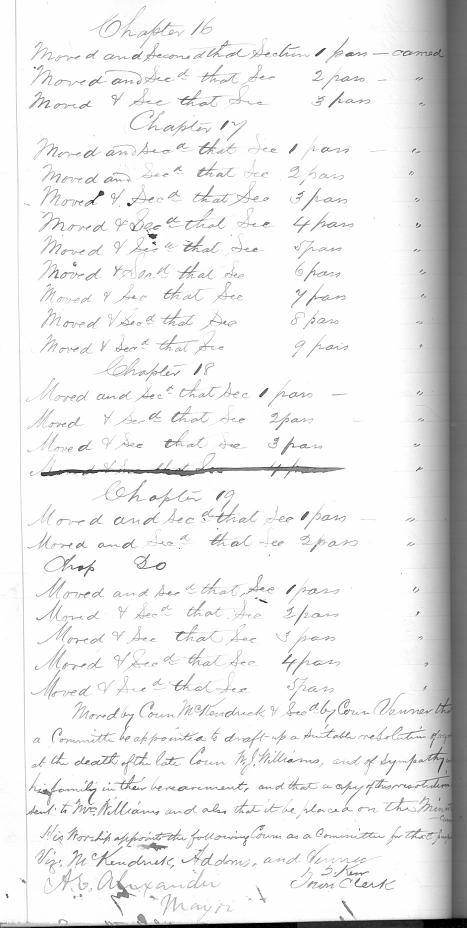 Chapter 16
Moved and Seconed that Section 1 pass — carried
Moved and Secd that Sec 2 pass — "
Moved & Sec that Sec 3 pass "
Chapter 17
Moved and Secd that Sec 1 pass — "
Moved and Secd that Sec 2 pass "
Moved & Secd that Sec 3 pass "
Moved & Secd that Sec 4 pass "
Moved & Secd that Sec 5 pass "
Moved & Secnd that Sec 6 pass "
Moved & Sec that Sec 7 pass "
Moved & Secd that Sec 8 pass "
Moved & Secd that Sec 9 pass "
Chapter 18
Moved and Secd that Sec 1 pass — "
Moved & Secd that Sec 2 pass - "
Moved & Sec that Sec 3 pass "
Moved & Sec that Sec 4 pass "
Chapter 19
Moved and Secd that Sec 1 pass — "
Moved and Secd that Sec 2 pass - "
Chap 20
Moved and Secd that Sec 1 pass "
Moved & Secd that Sec 2 pass "
Moved & Sec that Sec 3 pass "
Moved & Secd that Sec 4 pass "
Moved & Secd that Sec 5 pass "
Moved by Coun McKendrick & Secd by Coun Venner tha
a Committe be appointed to draft up a suitable resolution of
at the death of the late Coun W.J. Williams, and of Sympathy
his family in their bereavement, and that a copy of this resolution
sent to Mrs Williams and also that it be placed on the Minu
His Worship appoints the following Couns as a Committee for that
Viz. McKendrick, Addoms, and Venner
A.C. Alexander
Mayor
Kerr
Town Clerk